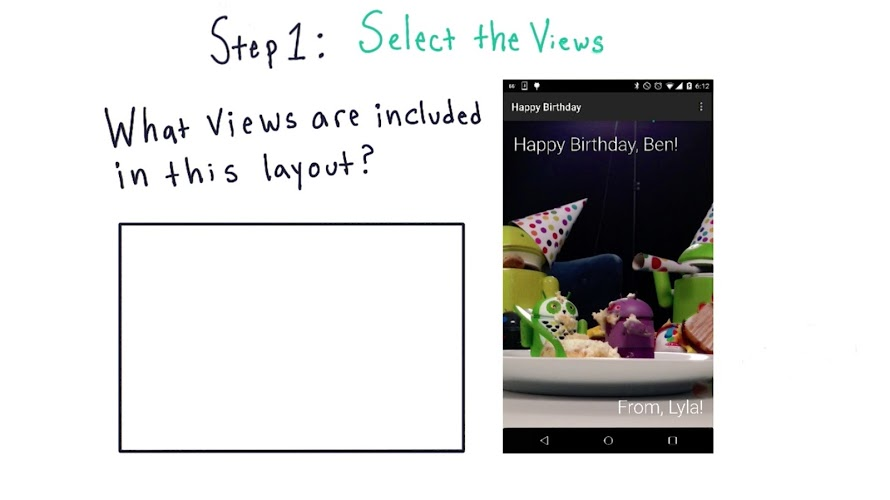 Step 1: Select the Views
What views are included
in this layout?
6:12
Happy Birthday
Happy Birthday, Ben!
From, Lyla!